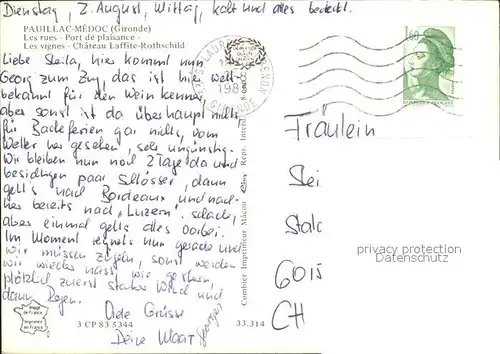 Dienstag, 2. August, Mittag, kalt und alles bedeckt.
PAUILLAC-MÉDOC (Gironde)
Les rues - Port de plaisance -
Les vignes - Château Laffite-Rothschild
Liebe Sheila, hier kommt nun
Georg zum Zug, das ist hier welt-
bekannt für den Weinkenner,
aber sonst ist da überhaupt nichts
für Badeferien gar nichts, vom
Wetter her gesehen, sehr ungünstig.
Wir bleiben nur noch 2 Tage da und
besichtigen paar Schlösser, dann
geht's nach Bordeaux und nach-
her bereits nach "Luzern". schade,
aber einmal geht alles vorbei.
Im Moment regnets nun gerade und
wir müssen zügeln, sonst werden
wir wieder nass wie gestern,
plötzlich zuerst starker Wind und
dann Regen.
Viele Grüsse
Deine
Georges
image
de France
imprimée
en France
3 CP 83 5344
33.314
Combier Imprimeur Mâcon
Repr. Interd.
GIRONDE
1,60
REPUBLIQUE FRANÇAISE
Fräulein
6015
CH
privacy protection
Datenschutz